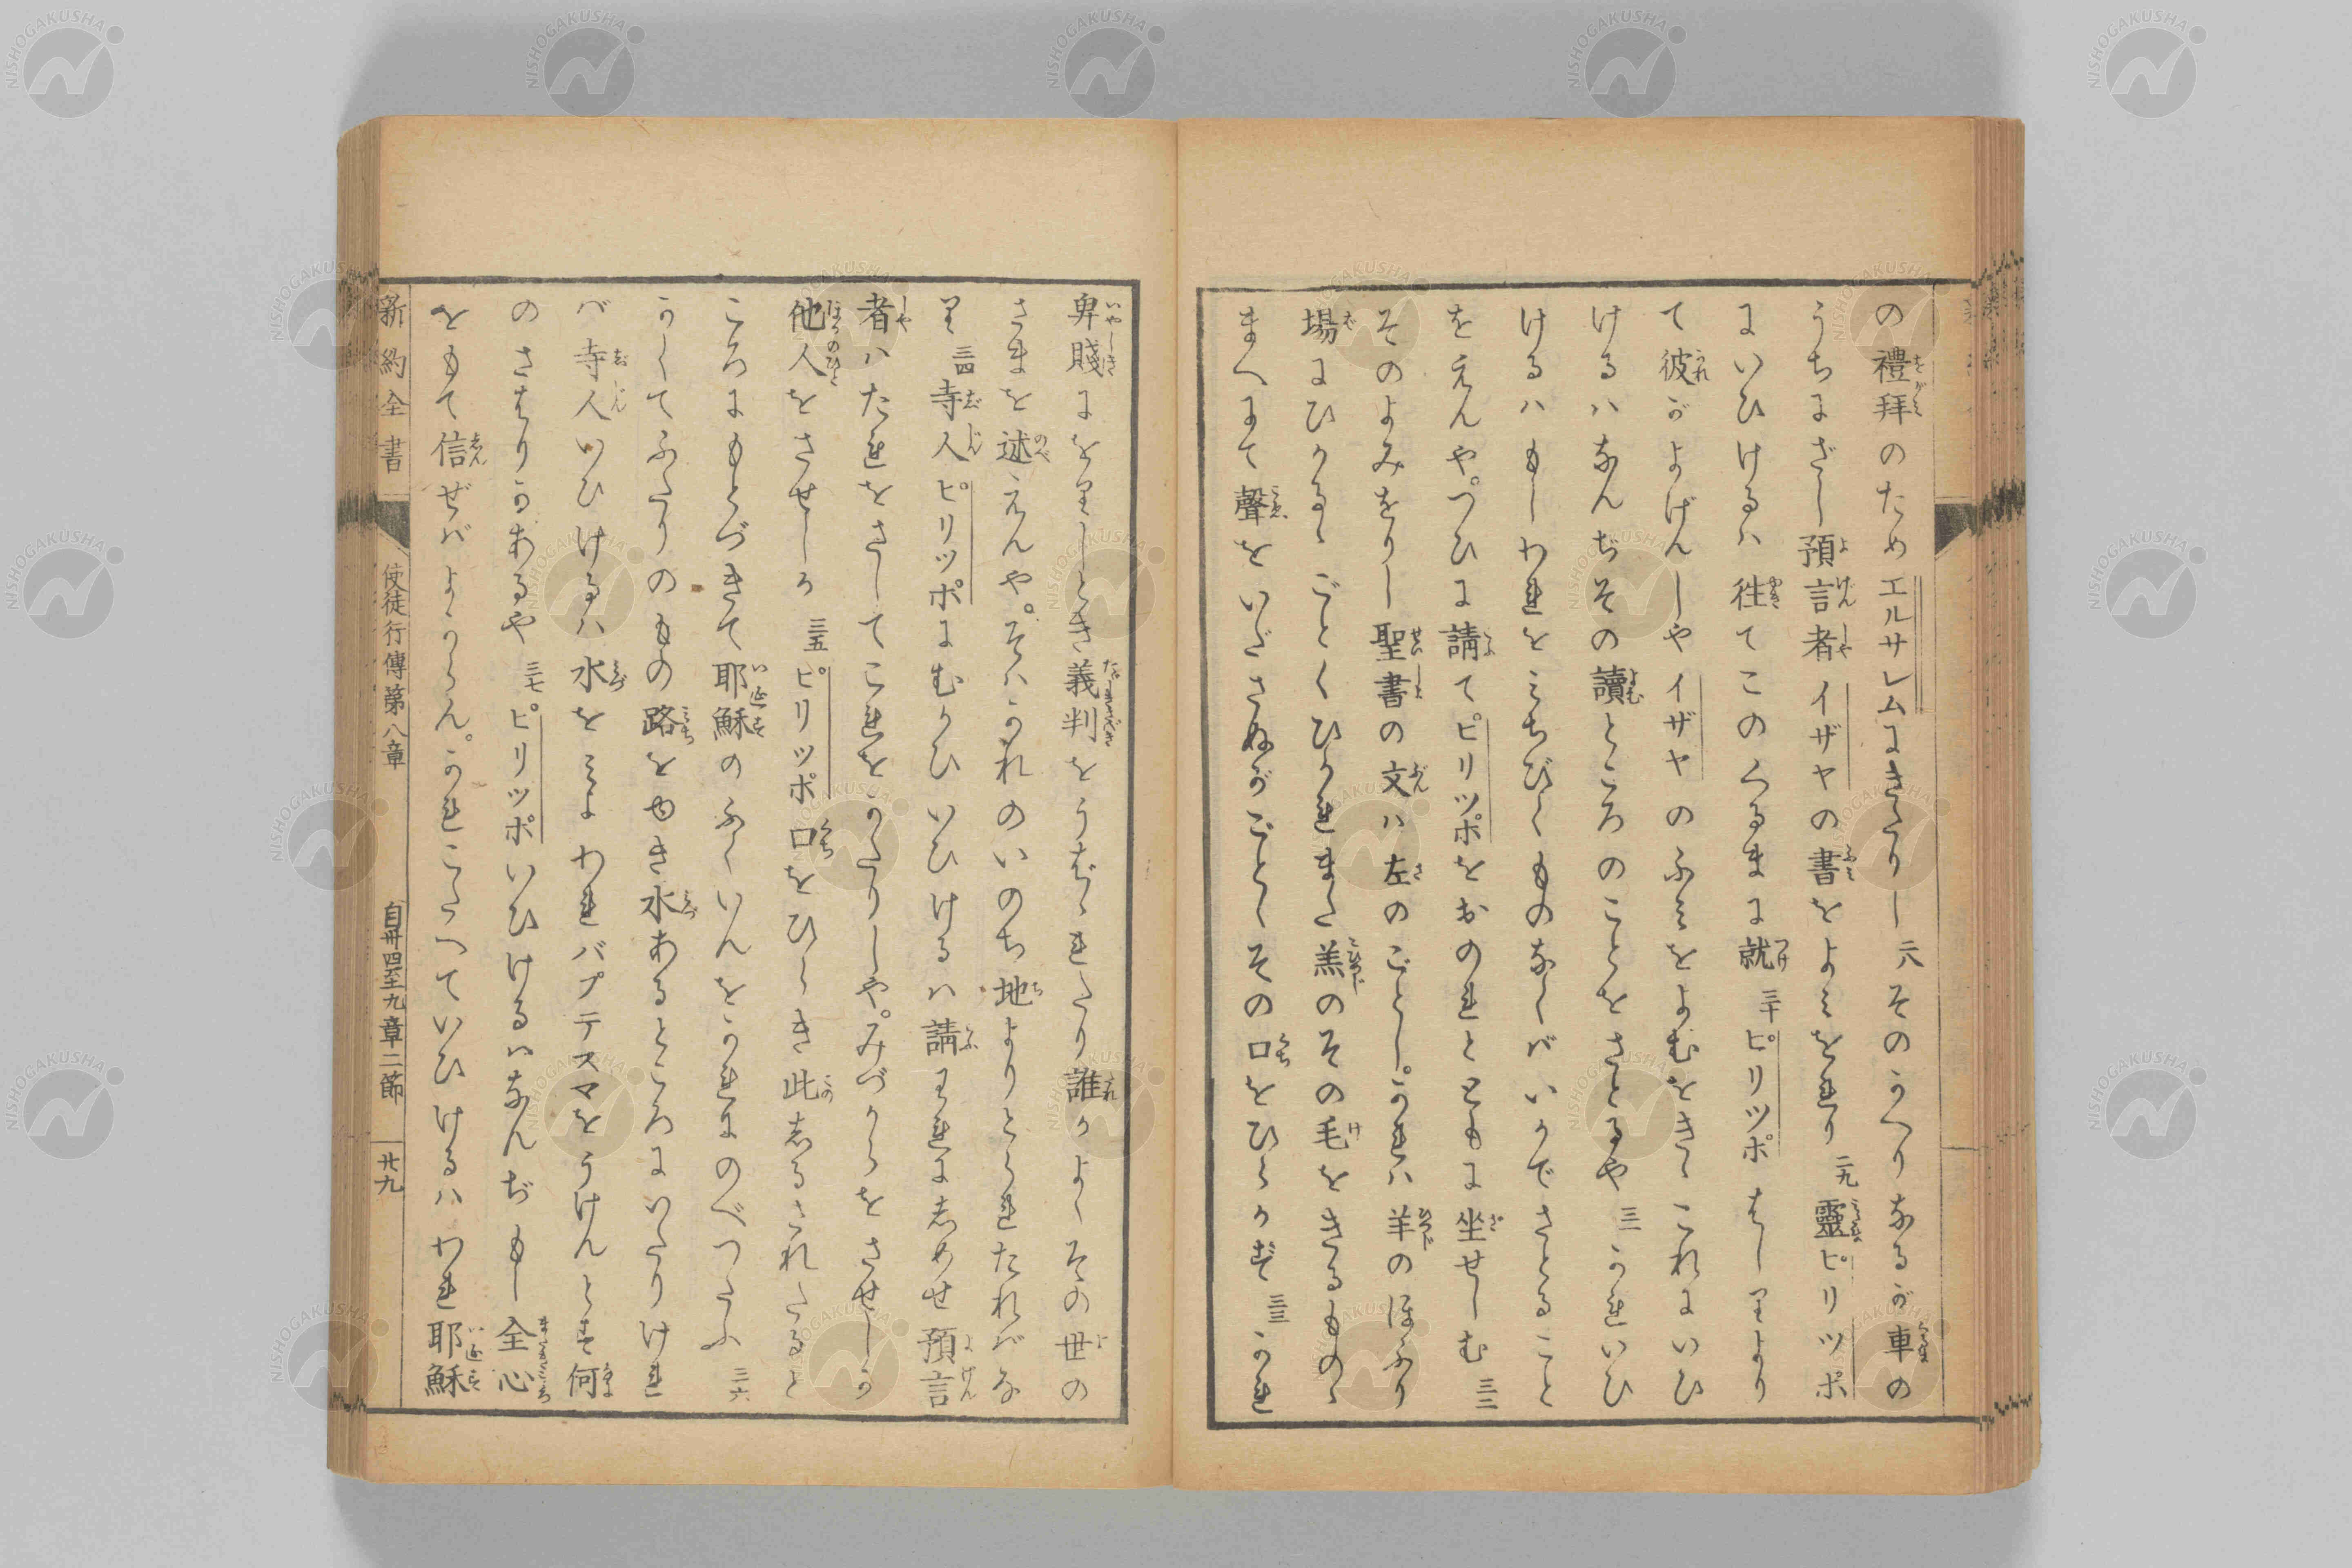 の禮拜のためエルサレムにきたりし 二八 そのかへりなるが車の
うちにざし預言者イザヤの書をよミをれり 二九 靈ピリツポ
にいひけるハ徃てこのくるまに就 三十 ピリツポはしりより
て彼がよげんしやイザヤのふミをよむをきゝこれにいひ
けるハなんぢその讀ところのことをさとるや 三一 かれいひ
けるハもしわれをミちびくものなくバいかでさとること
をえんや。つひに請てピリツポをおのれとともに坐せしむ 三二
そのよみをりし聖書の文ハ左のごとし。かれハ羊のほふり
場にひかるゝごとくひかれまた羔のその毛をきるものゝ
まへにて聲をいださぬがごとくその口をひらかず 三三 かれ
卑賤にをりしとき義判をうばゝれたり誰かよくその世の
さまを述えんや。そハかれのいのち地よりとられたればな
り 三四 寺人ピリツポにむかひいひけるハ請われにしめせ預言
者ハたれをさしてこれをかたりしや。みづからをさせしか
他人をさせしか 三五 ピリツポ口をひらき此しるされたると
ころにもとづきて耶穌のふくいんをかれにのべつたふ 三六
かくてふたりのもの路をゆき水あるところにいたりけれ
バ寺人いひけるハ水をミよわれバプテスマをうけんとす何
のさはりかあるや 三七 ピリツポいひけるハなんぢもし全心
をもて信ぜバよからん。かれこたへていひけるハわれ耶穌
新約全書 使徒行傳第八章 自卅四至九章二節 廿九
NISHOGAKUSHA